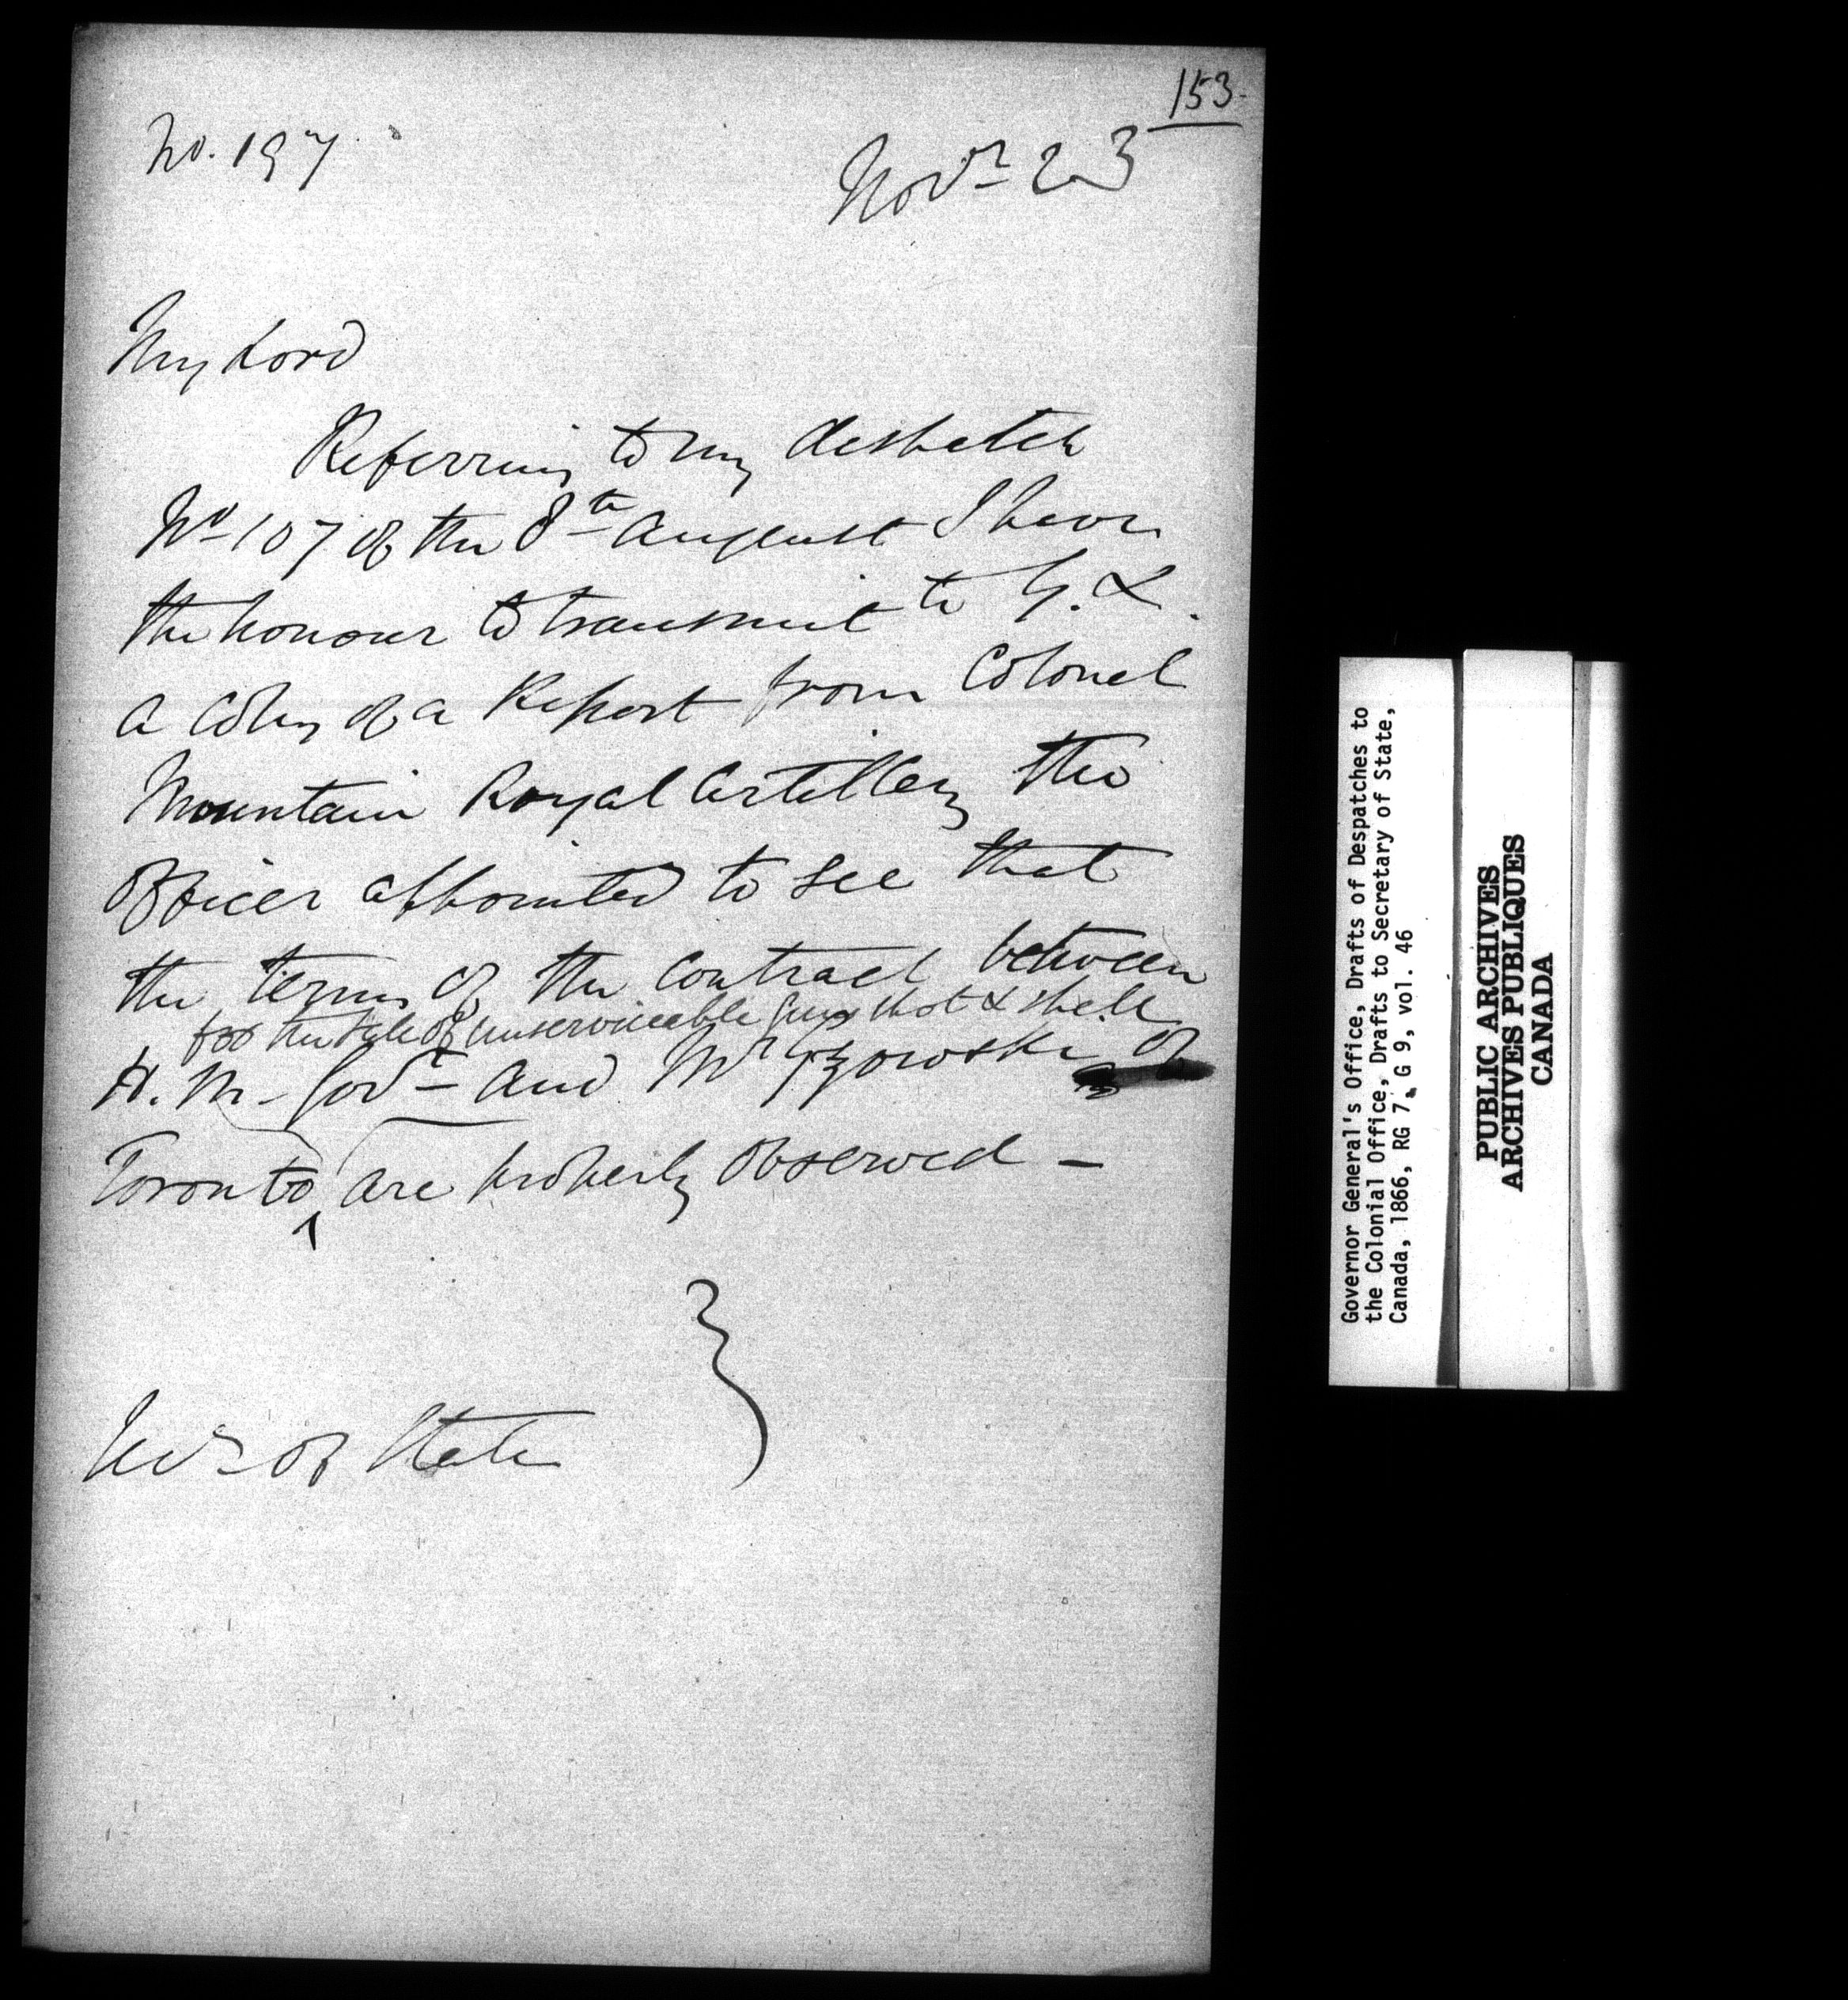 153.
No. 197
Novr 23
My Lord
Referring to my despatch
No 107 of the 8th August I have
the honour to transmit to Y. L.
a copy of a Report from Colonel
Mountain Royal Artillery the
Officer appointed to see that
the terms of the contract between
for the sale of unserviceable guns shot & shell
H. M. Govt and Mr Gzowski of
Toronto are properly observed -
Secy of State
Governor General's Office, Drafts of Despatches to
the Colonial Office, Drafts to Secretary of State,
Canada, 1866, RG 7, G 9, vol. 46
PUBLIC ARCHIVES
ARCHIVES PUBLIQUES
CANADA